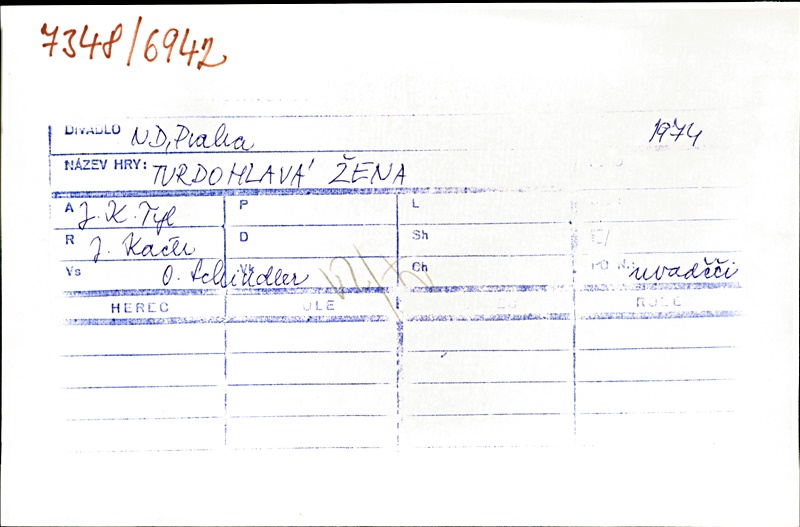 7348/6942
DIVADLO ND, Praha 1974
NÁZEV HRY: TVRDOHLAVÁ ŽENA
A J. K. Tyl P L
R J. Kačer D Sh
Vs O. Schindler Vk Ch uvaděči
HEREC ROLE